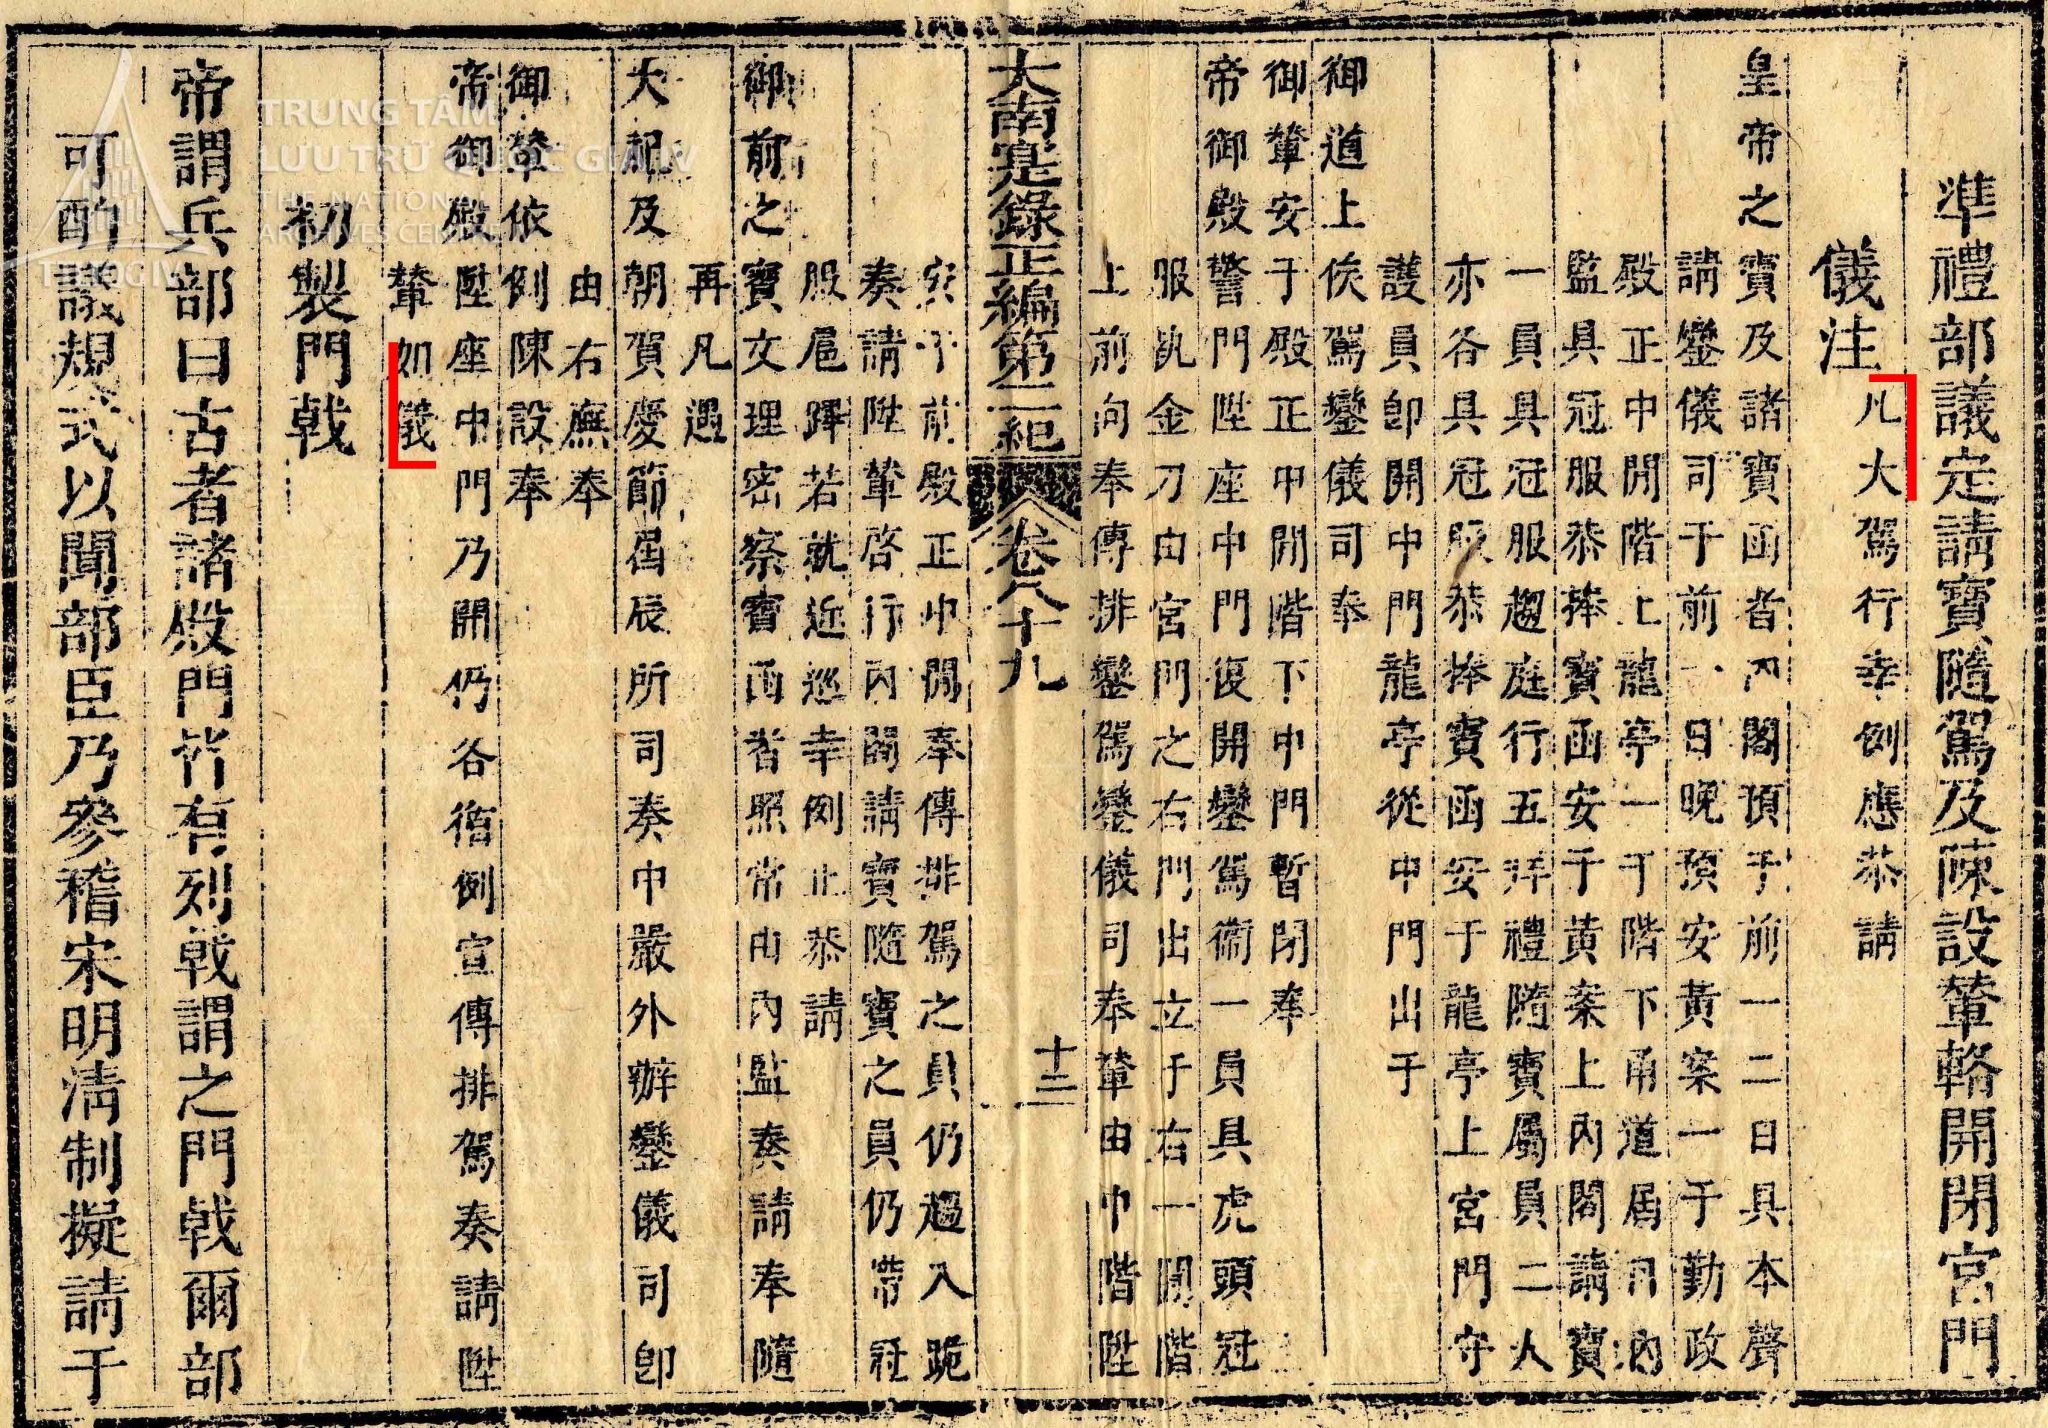 準禮部議定請寶隨駕及陳設輦輅開閉宮門
儀注
凡大駕行幸例應恭請
皇帝之寶及諸寶函者內閣預于前一二日具本聲
請鑾儀司于前一日晚預安黃案一于勤政
殿正中開階上龍亭一于階下甬道居中內
監具冠服恭捧寶函安于黃案上內閣請寶
一員具冠服趨庭行五拜禮隨寶屬員二人
亦各具冠服恭捧寶函安于龍亭上宮門守
護員卽開中門龍亭從中門出于
御道上俟駕鑾儀司奉
御輦安于殿正中開階下中門暫閉奉
帝御殿警門陞座中門復開鑾駕衞一員具虎頭冠
服執金刀由宮門之右門出立于右一開階
上前向奉傳排鑾駕鑾儀司奉輦由中階陞
大南寔錄正編第二紀
卷八十九
十二
安于前殿正中開奉傳排駕之員仍趨入跪
奏請陞輦啓行內閣請寶隨寶之員仍帶冠
服扈蹕若就近巡幸例止恭請
御前之寶文理密察寶函者照常由內監奏請奉隨
再凡遇
大祀及朝賀慶節屆辰所司奏中嚴外辦鑾儀司卽
由右廡奉
御輦依例陳設奉
帝御殿陞座中門乃開仍各循例宣傳排駕奏請陞
輦如儀
初製門戟
帝謂兵部曰古者諸殿門竹有列戟謂之門戟爾部
可酌議規式以聞部臣乃參稽宋明淸制擬請于
TRUNG TÂM
LƯU TRỮ QUỐC GIA IV
THE NATIONAL
ARCHIVES CENTRE
TTLTQGIV